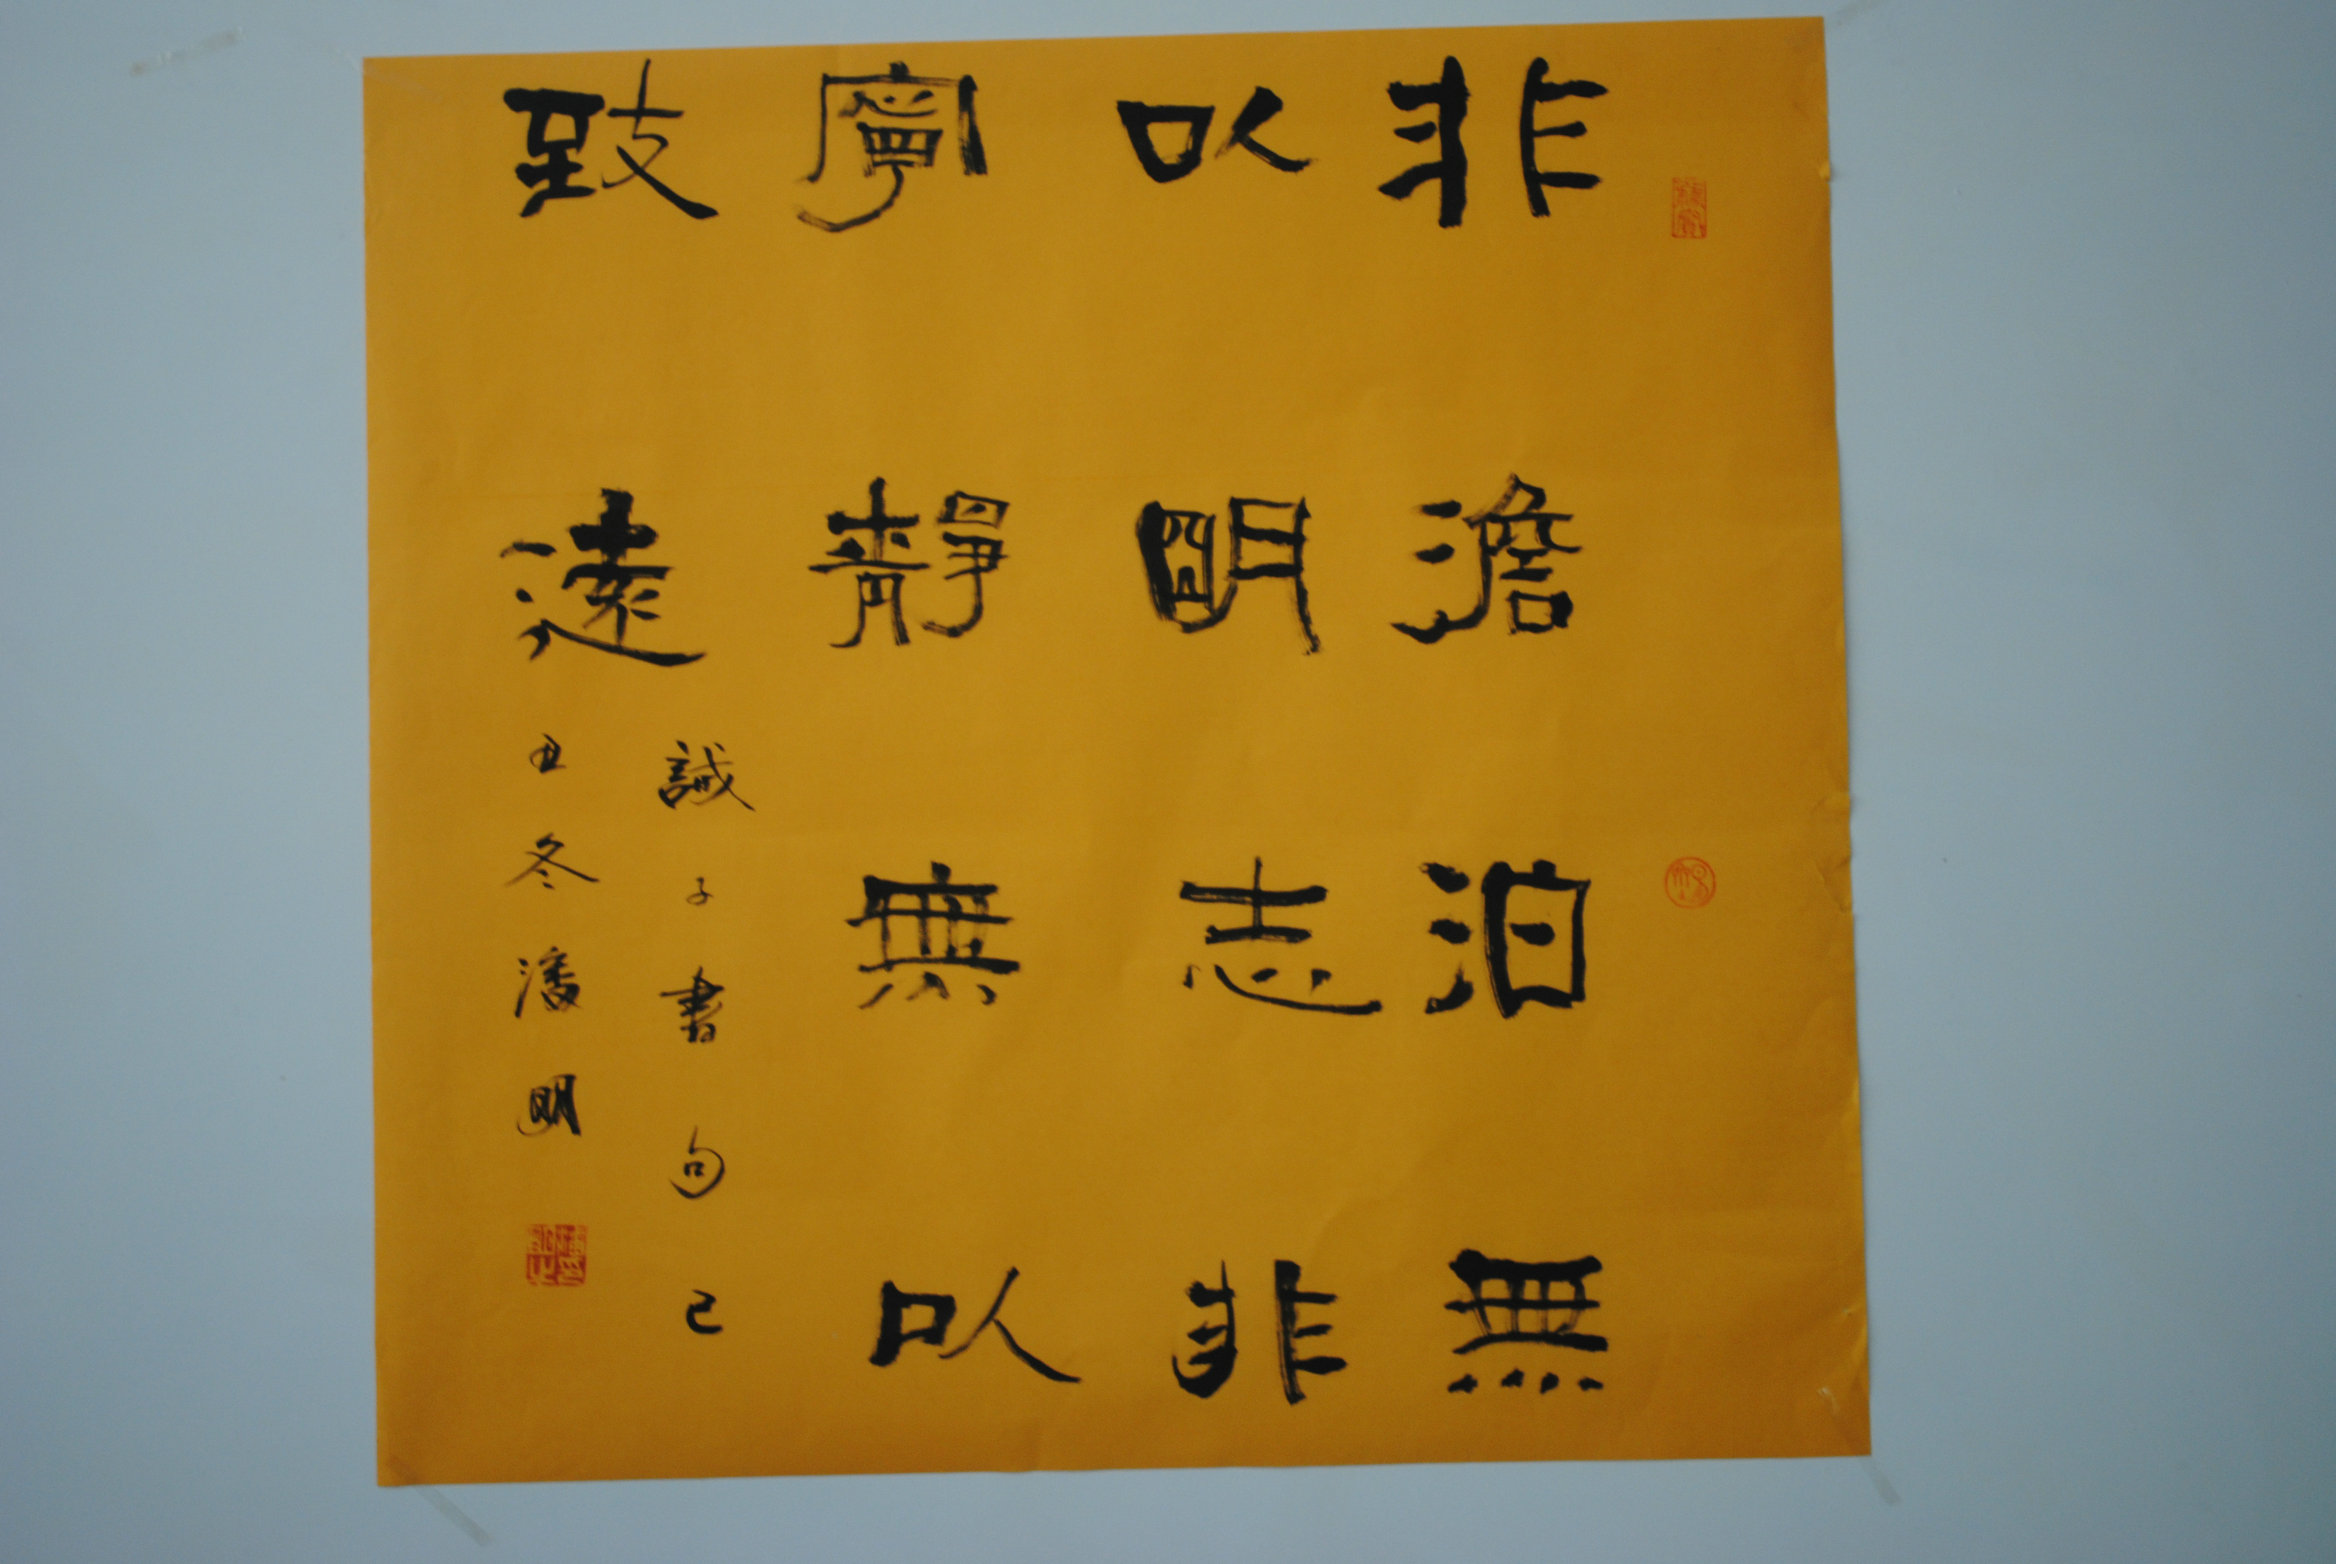 非澹泊無
以明志非
寧靜無以
致遠
誡子書句己
丑冬潘明